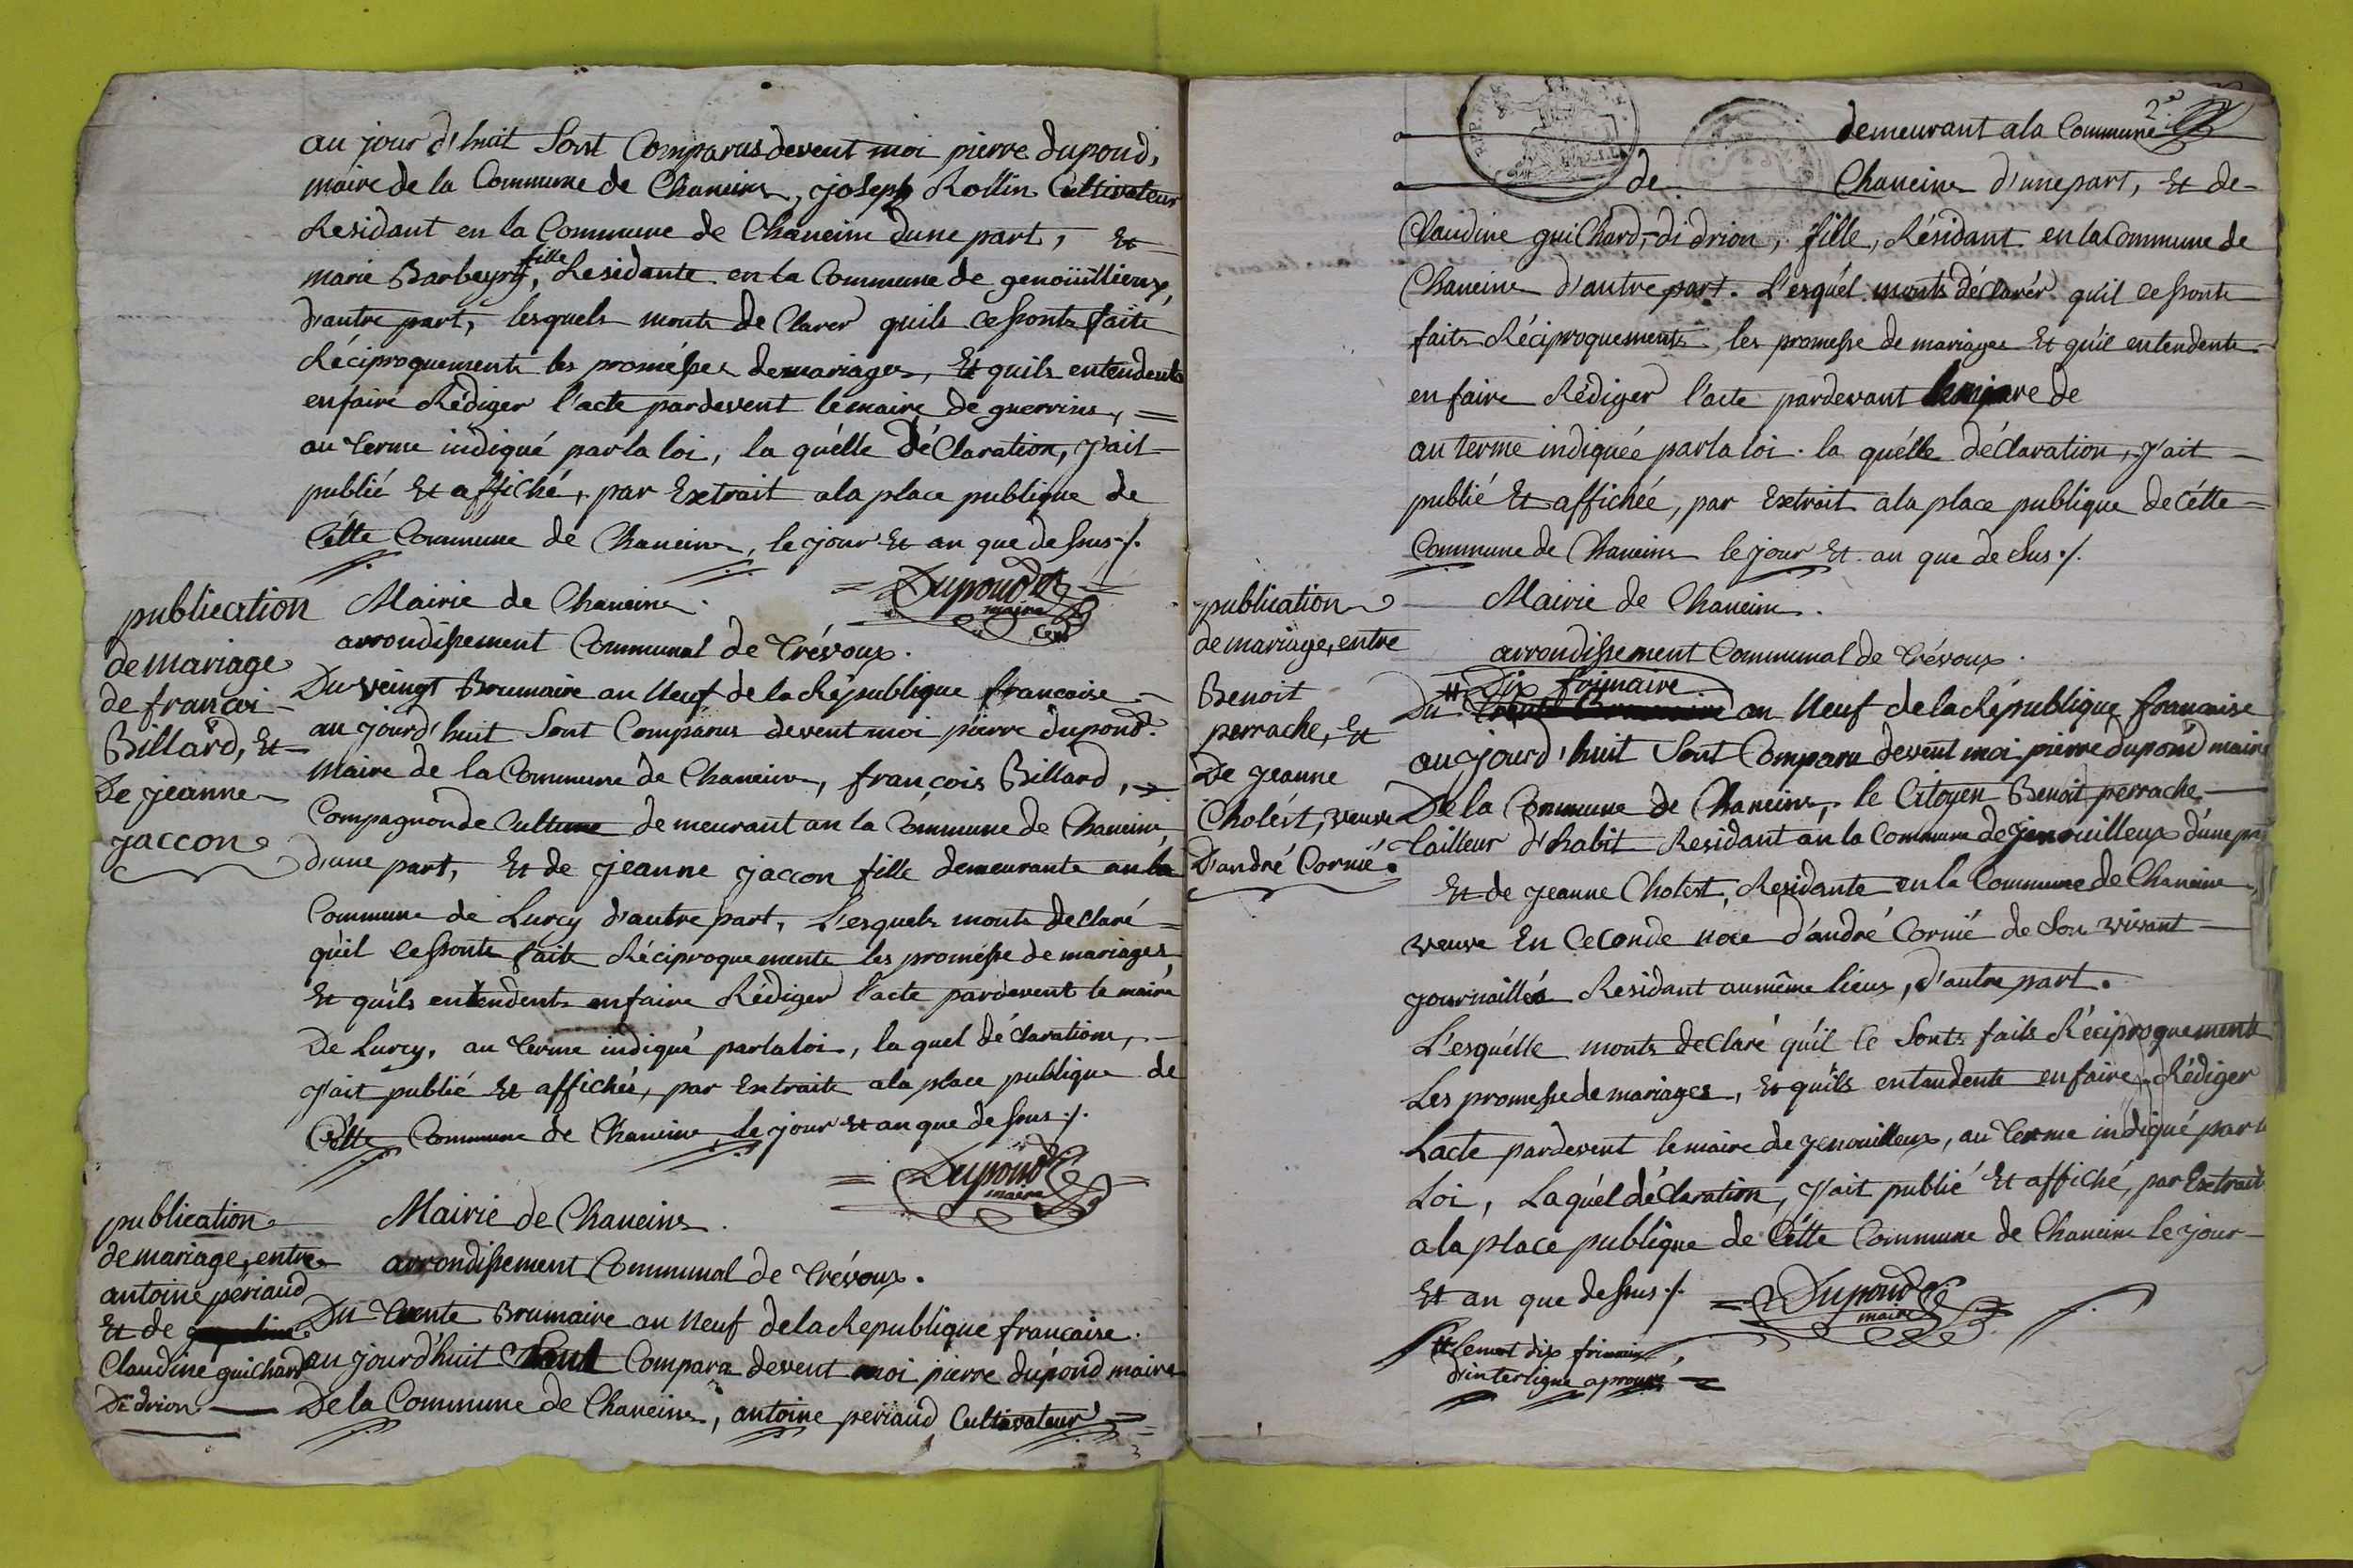 au jour d'huit Sont Comparus devent moi pierre dupond,
maire de la Commune de Chaneins, joseph Rollin Cultivateur
Residant en la Commune de Chaneins dune part, Et
fille
marie Barbeyry, Residante en la Commune de genoüillieux,
d'autre part, lesquels monts de Clarer quils cessonts faite
Réciproquements les proméses demariages, Et quils entendents
enfaire Rédiger l'acte pardevent lemaire de guerrins, =
au terme indiqué parla loi, la quélle déClaration, J'ait
publié Et affiché, par Extrait ala place publique de
Cétte Commune de Chaneins, le jour Et an que dessus ./.
Dupond
maire
publication
de mariage
de françoi
Billard, Et
De jeanne
jaccon
Mairie de Chaneins.
arrondissement Communal de trévoux.
Du veingt Brumaire an Neuf de la République francaise
au jourd'huit Sont Comparus devent moi pierre dupond.
Maire de la Commune de Chaneins, françois Billard,
Compagnon de Culture demeurant an la Commune de Chaneins,
D'une part, Et de jeanne jaccon fille demeurante an la
Commune de Lurcy d'autre part, L'esquels monts declaré =
qu'il cessonts faite Réciproquements les promésse de mariages
Et quils entendents enfaire Rédiger l'acte pardevent le maire
De Lurcy, au terme indiqué parlaloi, la quel déclarations,
J'ait publié Et affichés, par Extraits ala place publique de
Cétte Commune de Chaneins, le jour Et an que dessus ./.
Dupond
maire
publication
de mariage, entre
antoine periaud
Et de
Claudine guichard
Di drion
Mairie de Chaneins.
arrondissement Communal de trévoux.
Du trente Brumaire an Neuf dela Republique francaise.
au jourd'huit Sont Compara devent moi pierre dupond maire
De la Commune de Chaneins, antoine periaud Cultivateur
2e
demeurant ala Commune
de Chaneins d'une part, Et de
Claudine guiChard, di drion, fille, Résidant en la Commune de
Chaneins d'autre part. L'esquél monts déclarér qu'il cessonts
faits Réciproquements les promesse de mariages Et qu'il entendents
en faire Rédiger l'acte pardevant lemaire de
au terme indiquée parla loi. la quélle déclaration, J'ait
publié Et affichée, par Extrait ala place publique de Cétte
Commune de Chaneins le jour Et an que de sus ./.
publication
de mariage, entre
Benoit
perrache, Et
De jeanne
Cholést, veuve
D'andré Cornié.
Mairie de Chaneins.
arrondissement Communal de trévoux.
# Dix frimaire
Du trente Brumaire an Neuf de la République francaise
au jourd'huit Sont Compara devent moi pierre dupond maire
De la Commune de Chaneins, le Citoyen Benoit perrache
tailleur d'habit Residant an la Commune de jenouilleux d'une pt
Et de jeanne Cholest, Residante en la Commune de Chaneins,
veuve En Ceconde noce d'andré Cornié de Son vivant
journaillés Residant aumême lieux, d'autre part.
L'esquélle monts declaré qu'il ce Sonts faits Réciproquements
Les promesse de mariages, Et quils entendents enfaire Rédiger
Lacte pardevent lemaire de jenouilleux, au terme indiqué par la
Loi, Laquél déClaration, J'ait publié Et affiché, par Extrait
ala place publique de Cétte Commune de Chaneins le jour
Et an que dessus ./.
Dupond
maire
# Lemot dix frimaire
d'interligne aprouvé